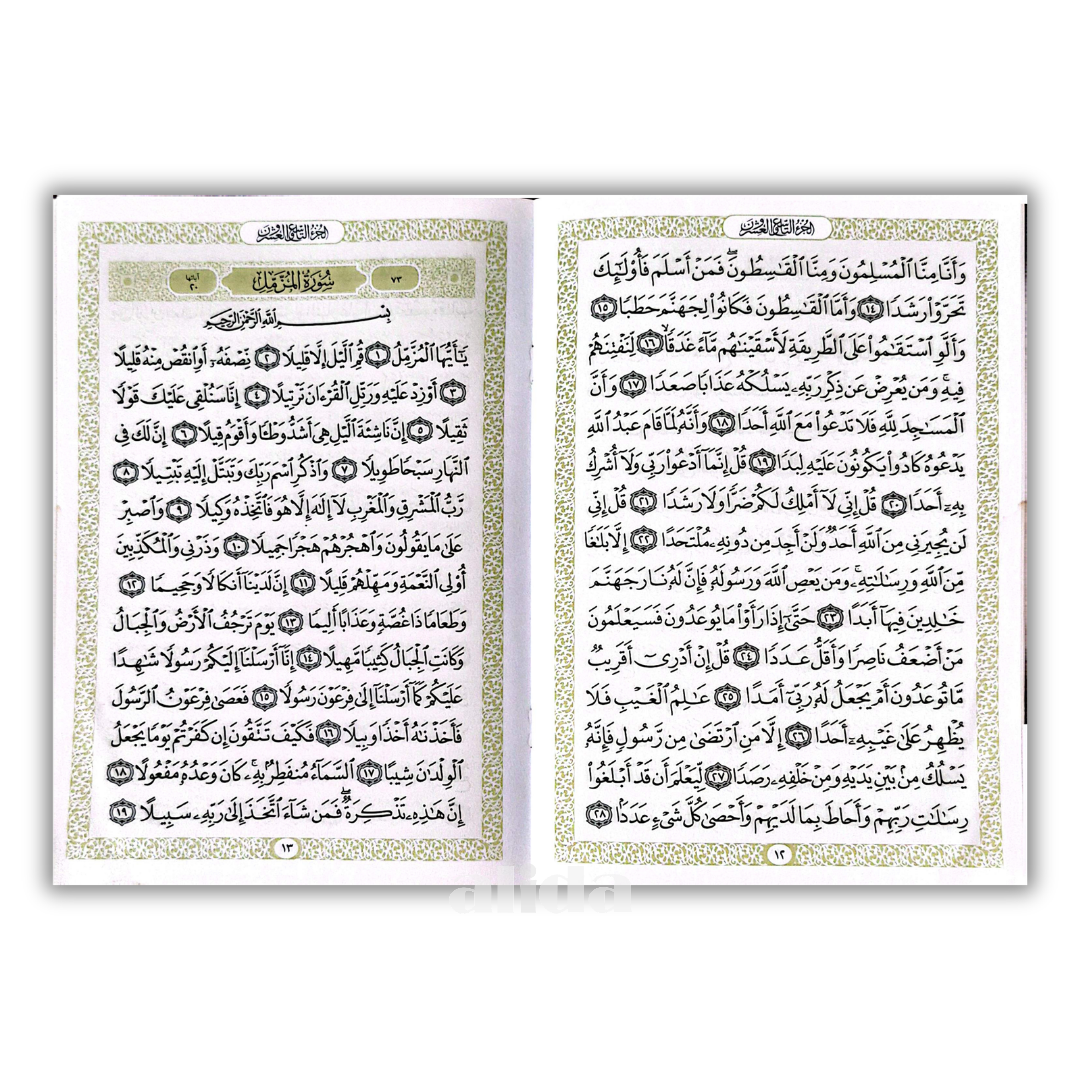 الجزء التاسع والعشرون
وَأَنَّا مِنَّا ٱلْمُسْلِمُونَ وَمِنَّا ٱلْقَٰسِطُونَۖ فَمَنْ أَسْلَمَ فَأُو۟لَٰٓئِكَ
تَحَرَّوْا۟ رَشَدًا ١٤ وَأَمَّا ٱلْقَٰسِطُونَ فَكَانُوا۟ لِجَهَنَّمَ حَطَبًا ١٥
وَأَلَّوِ ٱسْتَقَٰمُوا۟ عَلَى ٱلطَّرِيقَةِ لَأَسْقَيْنَٰهُم مَّآءً غَدَقًا ١٦ لِّنَفْتِنَهُمْ
فِيهِۚ وَمَن يُعْرِضْ عَن ذِكْرِ رَبِّهِۦ يَسْلُكْهُ عَذَابًا صَعَدًا ١٧ وَأَنَّ
ٱلْمَسَٰجِدَ لِلَّهِ فَلَا تَدْعُوا۟ مَعَ ٱللَّهِ أَحَدًا ١٨ وَأَنَّهُۥ لَمَّا قَامَ عَبْدُ ٱللَّهِ
يَدْعُوهُ كَادُوا۟ يَكُونُونَ عَلَيْهِ لِبَدًا ١٩ قُلْ إِنَّمَآ أَدْعُوا۟ رَبِّى وَلَآ أُشْرِكُ
بِهِۦٓ أَحَدًا ٢٠ قُلْ إِنِّى لَآ أَمْلِكُ لَكُمْ ضَرًّا وَلَا رَشَدًا ٢١ قُلْ إِنِّى
لَن يُجِيرَنِى مِنَ ٱللَّهِ أَحَدٌ وَلَنْ أَجِدَ مِن دُونِهِۦ مُلْتَحَدًا ٢٢ إِلَّا بَلَٰغًا
مِّنَ ٱللَّهِ وَرِسَٰلَٰتِهِۦۚ وَمَن يَعْصِ ٱللَّهَ وَرَسُولَهُۥ فَإِنَّ لَهُۥ نَارَ جَهَنَّمَ
خَٰلِدِينَ فِيهَآ أَبَدًا ٢٣ حَتَّىٰٓ إِذَا رَأَوْا۟ مَا يُوعَدُونَ فَسَيَعْلَمُونَ
مَنْ أَضْعَفُ نَاصِرًا وَأَقَلُّ عَدَدًا ٢٤ قُلْ إِنْ أَدْرِىٓ أَقَرِيبٌ
مَّا تُوعَدُونَ أَمْ يَجْعَلُ لَهُۥ رَبِّىٓ أَمَدًا ٢٥ عَٰلِمُ ٱلْغَيْبِ فَلَا
يُظْهِرُ عَلَىٰ غَيْبِهِۦٓ أَحَدًا ٢٦ إِلَّا مَنِ ٱرْتَضَىٰ مِن رَّسُولٍ فَإِنَّهُۥ
يَسْلُكُ مِنۢ بَيْنِ يَدَيْهِ وَمِنْ خَلْفِهِۦ رَصَدًا ٢٧ لِّيَعْلَمَ أَن قَدْ أَبْلَغُوا۟
رِسَٰلَٰتِ رَبِّهِمْ وَأَحَاطَ بِمَا لَدَيْهِمْ وَأَحْصَىٰ كُلَّ شَىْءٍ عَدَدًۢا ٢٨
١٢
الجزء التاسع والعشرون
٧٣ سُورَةُ المُزَّمِّلِ آياتها ٢٠
بِسْمِ ٱللَّهِ ٱلرَّحْمَٰنِ ٱلرَّحِيمِ
يَٰٓأَيُّهَا ٱلْمُزَّمِّلُ ١ قُمِ ٱلَّيْلَ إِلَّا قَلِيلًا ٢ نِّصْفَهُۥٓ أَوِ ٱنقُصْ مِنْهُ قَلِيلًا
٣ أَوْ زِدْ عَلَيْهِ وَرَتِّلِ ٱلْقُرْءَانَ تَرْتِيلًا ٤ إِنَّا سَنُلْقِى عَلَيْكَ قَوْلًا
ثَقِيلًا ٥ إِنَّ نَاشِئَةَ ٱلَّيْلِ هِىَ أَشَدُّ وَطْـًٔا وَأَقْوَمُ قِيلًا ٦ إِنَّ لَكَ فِى
ٱلنَّهَارِ سَبْحًا طَوِيلًا ٧ وَٱذْكُرِ ٱسْمَ رَبِّكَ وَتَبَتَّلْ إِلَيْهِ تَبْتِيلًا ٨
رَّبُّ ٱلْمَشْرِقِ وَٱلْمَغْرِبِ لَآ إِلَٰهَ إِلَّا هُوَ فَٱتَّخِذْهُ وَكِيلًا ٩ وَٱصْبِرْ
عَلَىٰ مَا يَقُولُونَ وَٱهْجُرْهُمْ هَجْرًا جَمِيلًا ١٠ وَذَرْنِى وَٱلْمُكَذِّبِينَ
أُو۟لِى ٱلنَّعْمَةِ وَمَهِّلْهُمْ قَلِيلًا ١١ إِنَّ لَدَيْنَآ أَنكَالًا وَجَحِيمًا ١٢
وَطَعَامًا ذَا غُصَّةٍ وَعَذَابًا أَلِيمًا ١٣ يَوْمَ تَرْجُفُ ٱلْأَرْضُ وَٱلْجِبَالُ
وَكَانَتِ ٱلْجِبَالُ كَثِيبًا مَّهِيلًا ١٤ إِنَّآ أَرْسَلْنَآ إِلَيْكُمْ رَسُولًا شَٰهِدًا
عَلَيْكُمْ كَمَآ أَرْسَلْنَآ إِلَىٰ فِرْعَوْنَ رَسُولًا ١٥ فَعَصَىٰ فِرْعَوْنُ ٱلرَّسُولَ
فَأَخَذْنَٰهُ أَخْذًا وَبِيلًا ١٦ فَكَيْفَ تَتَّقُونَ إِن كَفَرْتُمْ يَوْمًا يَجْعَلُ
ٱلْوِلْدَٰنَ شِيبًا ١٧ ٱلسَّمَآءُ مُنفَطِرٌۢ بِهِۦۚ كَانَ وَعْدُهُۥ مَفْعُولًا ١٨
إِنَّ هَٰذِهِۦ تَذْكِرَةٌۖ فَمَن شَآءَ ٱتَّخَذَ إِلَىٰ رَبِّهِۦ سَبِيلًا ١٩
١٣
alida